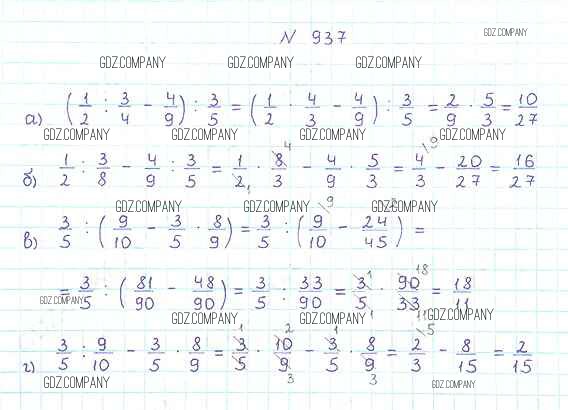 № 937
GDZ.COMPANY
GDZ.COMPANY GDZ.COMPANY GDZ.COMPANY
а) (1/2 : 3/4 - 4/9) : 3/5 = (1/2 · 4/3 - 4/9) : 3/5 = 2/9 · 5/3 = 10/27
GDZ.COMPANY GDZ.COMPANY GDZ.COMPANY
б) 1/2 : 3/8 - 4/9 : 3/5 = 1/2 · 8/3 - 4/9 · 5/3 = 4/3 - 20/27 = 16/27
GDZ.COMPANY GDZ.COMPANY GDZ.COMPANY
в) 3/5 : (9/10 - 3/5 · 8/9) = 3/5 : (9/10 - 24/45) =
= 3/5 : (81/90 - 48/90) = 3/5 : 33/90 = 3/5 · 90/33 = 18/11
GDZ.COMPANY
GDZ.COMPANY GDZ.COMPANY GDZ.COMPANY
г) 3/5 : 9/10 - 3/5 · 8/9 = 3/5 · 10/9 - 3/5 · 8/9 = 2/3 - 8/15 = 2/15
GDZ.COMPANY GDZ.COMPANY